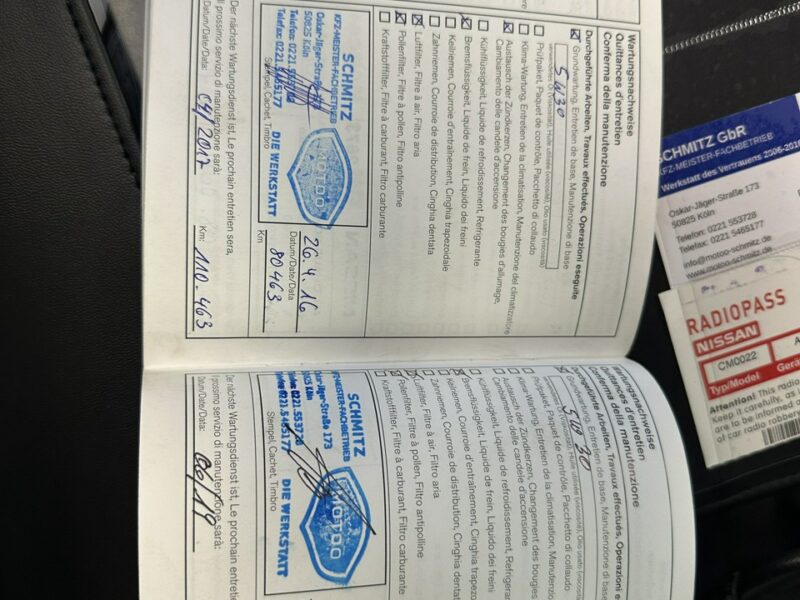 Wartungsnachweise
Quittances d'entretien
Conferma della manutenzione
Durchgeführte Arbeiten, Travaux effectués, Operazioni eseguite
Grundwartung, Entretien de base, Manutenzione di base
5W30
Prüfpaket, Paquet de contrôle, Pacchetto di collaudo
Klima-Wartung, Entretien de la climatisation, Manutenzione del climatizzatore
Austausch der Zündkerzen, Changement des bougies d'allumage,
Cambiamento delle candele d'accensione
Kühlflüssigkeit, Liquide de refroidissement, Refrigerante
Bremsflüssigkeit, Liquide de frein, Liquido dei freini
Keilriemen, Courroie d'entraînement, Cinghia trapezoidale
Zahnriemen, Courroie de distribution, Cinghia dentata
Luftfilter, Filtre à air, Filtro aria
Pollenfilter, Filtre à pollen, Filtro antipolline
Kraftstofffilter, Filtre à carburant, Filtro carburante
SCHMITZ
KFZ-MEISTER-FACHBETRIEB
Oskar-Jäger-Straße 173
50825 Köln
Telefon: 0221.553728
Telefax: 0221.5465177
MOTOO
DIE WERKSTATT
Stempel, Cachet, Timbro
26.4.16
Datum/Date/Data
80463
Km
Der nächste Wartungsdienst ist, Le prochain entretien sera,
Il prossimo servizio di manutenzione sarà:
Datum/Date/Data: 04/2017
Km: 110.463
Wartungsnachweise
Quittances d'entretien
Conferma della manutenzione
Durchgeführte Arbeiten, Travaux effectués, Operazioni
Grundwartung, Entretien de base, Manutenzione di
5W30
Prüfpaket, Paquet de contrôle, Pacchetto di collaudo
Klima-Wartung, Entretien de la climatisation, Manutenzione
Austausch der Zündkerzen, Changement des bougies
Cambiamento delle candele d'accensione
Kühlflüssigkeit, Liquide de refroidissement, Refrigeran
Bremsflüssigkeit, Liquide de frein, Liquido dei freini
Keilriemen, Courroie d'entraînement, Cinghia trapezo
Zahnriemen, Courroie de distribution, Cinghia dentata
Luftfilter, Filtre à air, Filtro aria
Pollenfilter, Filtre à pollen, Filtro antipolline
Kraftstofffilter, Filtre à carburant, Filtro carburante
SCHMITZ
KFZ-MEISTER-FACHBETRIEB
Oskar-Jäger-Straße 173
50825 Köln
Telefon: 0221.553728
Telefax: 0221.5465177
MOTOO
DIE WERKSTATT
Stempel, Cachet, Timbro
Der nächste Wartungsdienst ist, Le prochain entretie
Il prossimo servizio di manutenzione sarà:
Datum/Date/Data:
SCHMITZ GbR
KFZ-MEISTER-FACHBETRIEB
Werkstatt des Vertrauens 2006-2016
Oskar-Jäger-Straße 173
50825 Köln
Telefon: 0221 553728
Telefax: 0221 5465177
info@motoo-schmitz.de
www.motoo-schmitz.de
RADIOPASS
NISSAN
CM0022
Typ/Model
Attention! This radio
Keep it carefully, as
are to be informed
of car radio robber